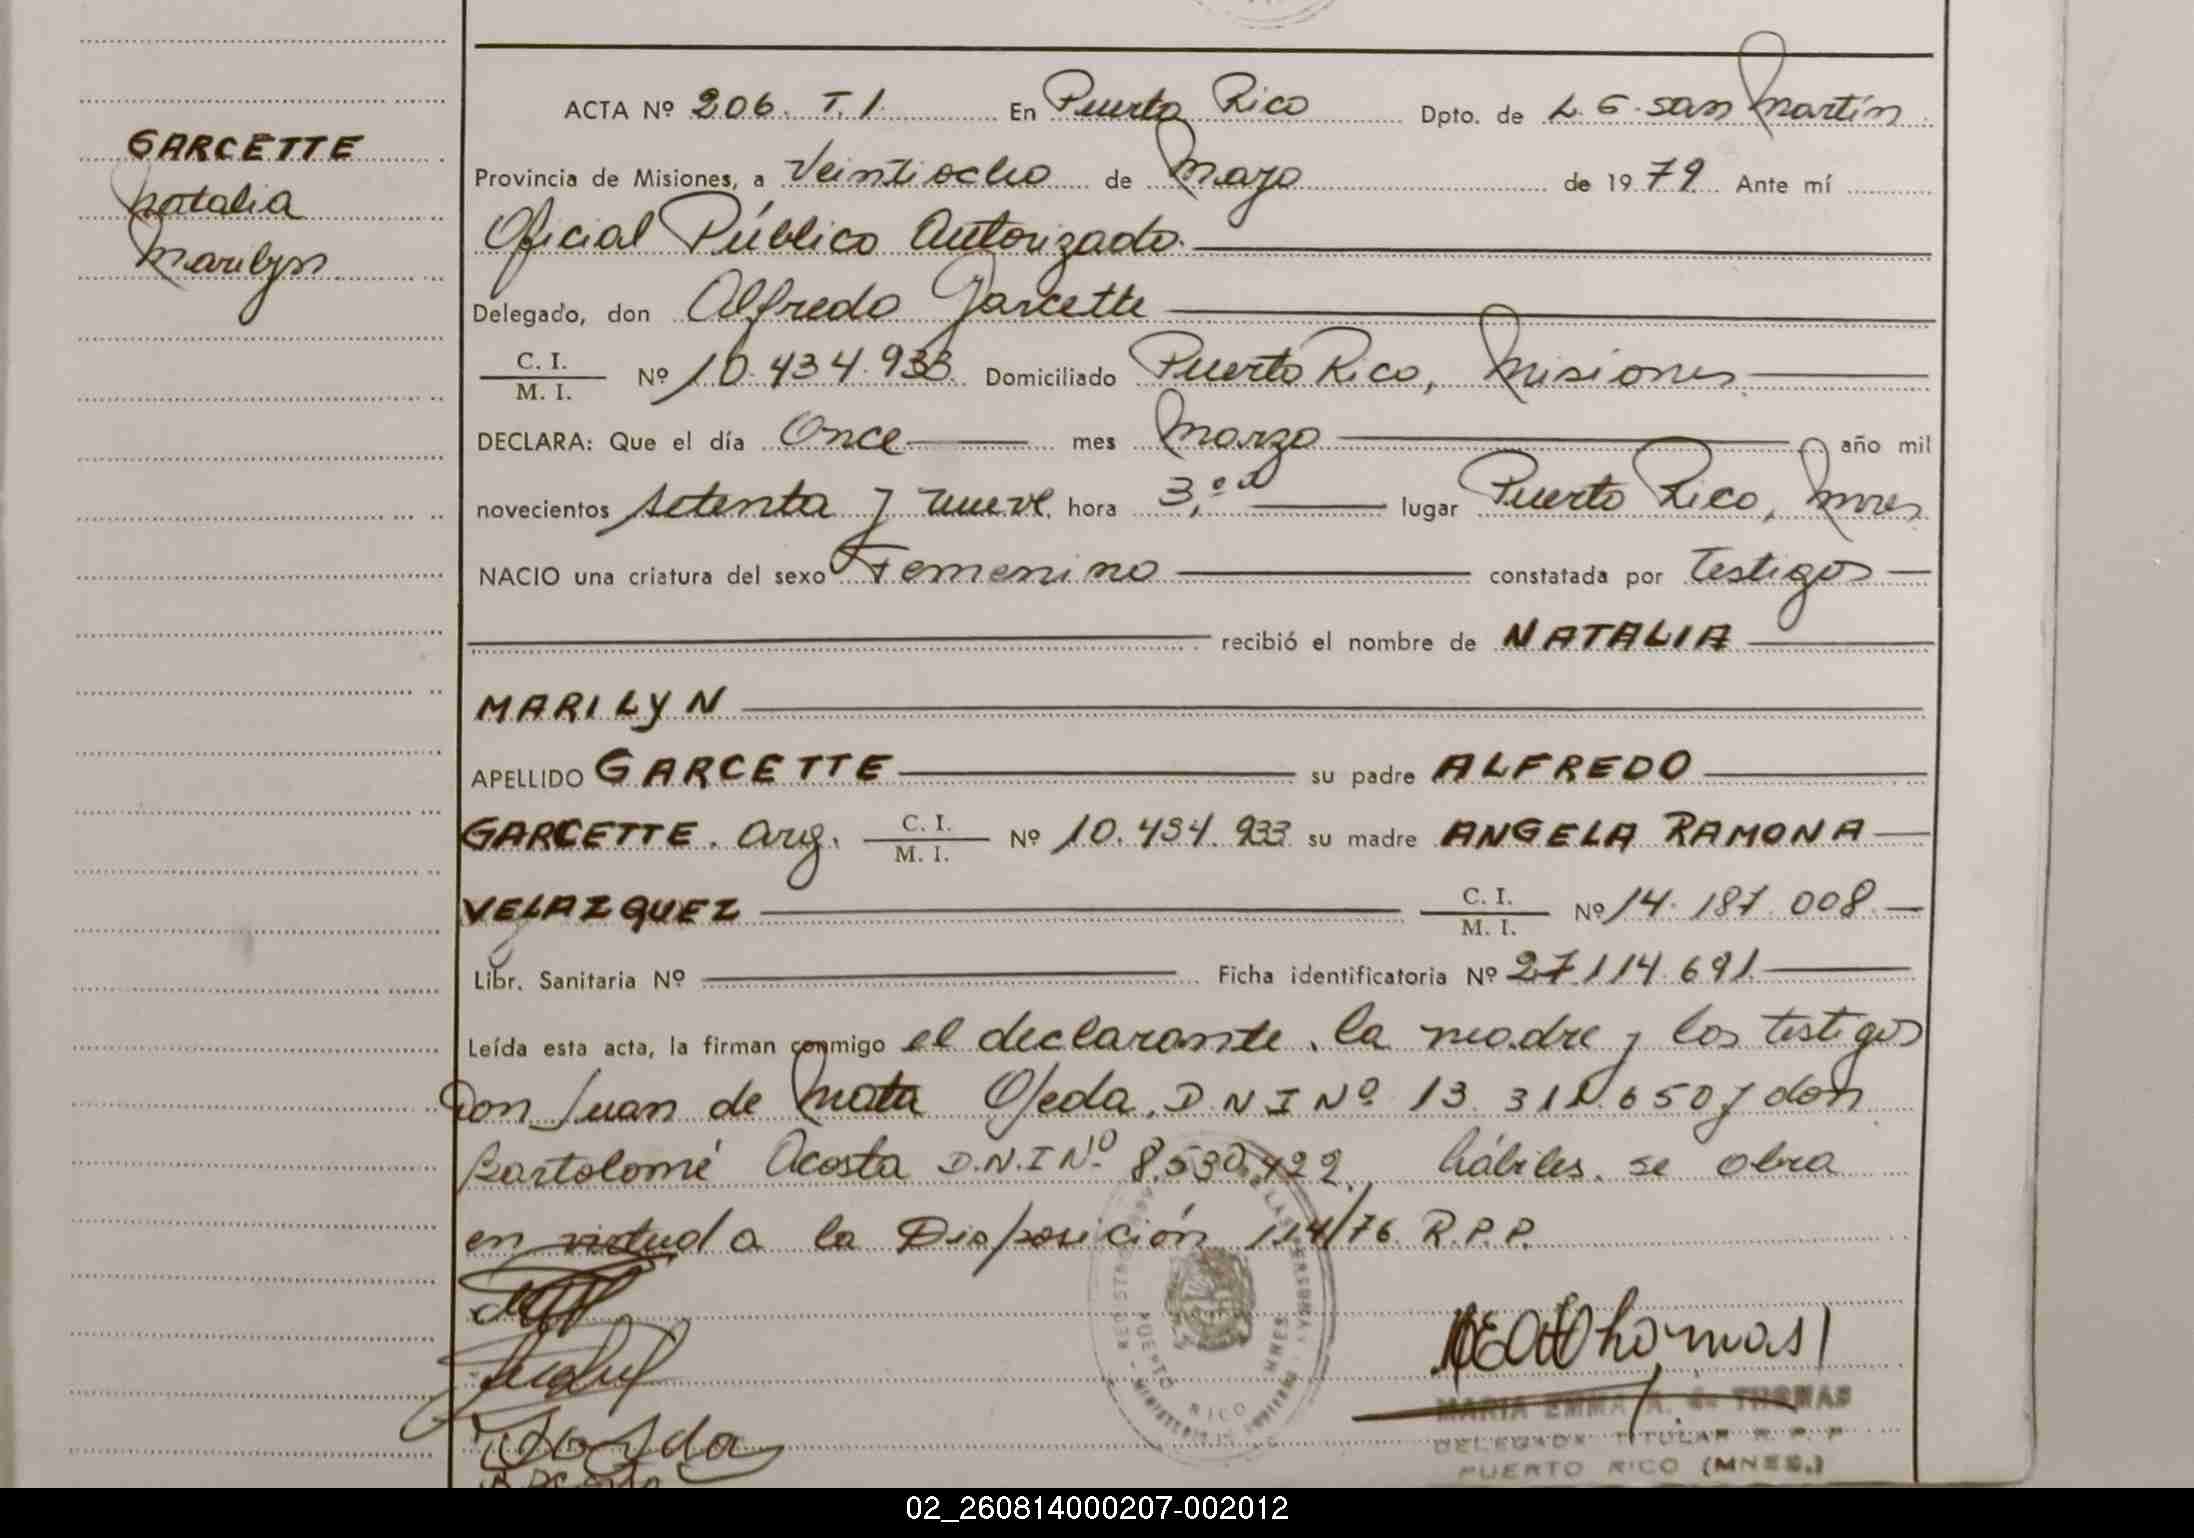 GARCETTE
Natalia
Marilyn
ACTA Nº 206. T. 1. En Puerto Rico Dpto. de L. G. San Martín
Provincia de Misiones, a Veintiocho de Mayo de 1979. Ante mí
Oficial Público Autorizado.
Delegado, don Alfredo Garcette
C. I.
M. I. Nº 10.434.933 Domiciliado Puerto Rico, Misiones
DECLARA: Que el día Once mes Marzo año mil
novecientos setenta y nueve hora 3, lugar Puerto Rico, Mnes
NACIO una criatura del sexo Femenino constatada por Testigos
recibió el nombre de NATALIA
MARILYN
APELLIDO GARCETTE su padre ALFREDO
GARCETTE. arg. C. I. M. I. Nº 10.434.933 su madre ANGELA RAMONA
VELAZQUEZ C. I. M. I. Nº 14.187.008
Libr. Sanitaria Nº Ficha identificatoria Nº 27.114.691
Leída esta acta, la firman conmigo el declarante, la madre y los testigos
Don Juan de Mata Ojeda, D N I Nº 13. 650 y don
Bartolomé Acosta D.N.I Nº 8.530.422, hábiles, se obra
en virtud a la Disposición 114/76 R.P.P.
PUERTO RICO MNES.
MARIA EMMA THOMAS
DELEGADA TITULAR R. P. P
PUERTO RICO (MNES.)
02_260814000207-002012